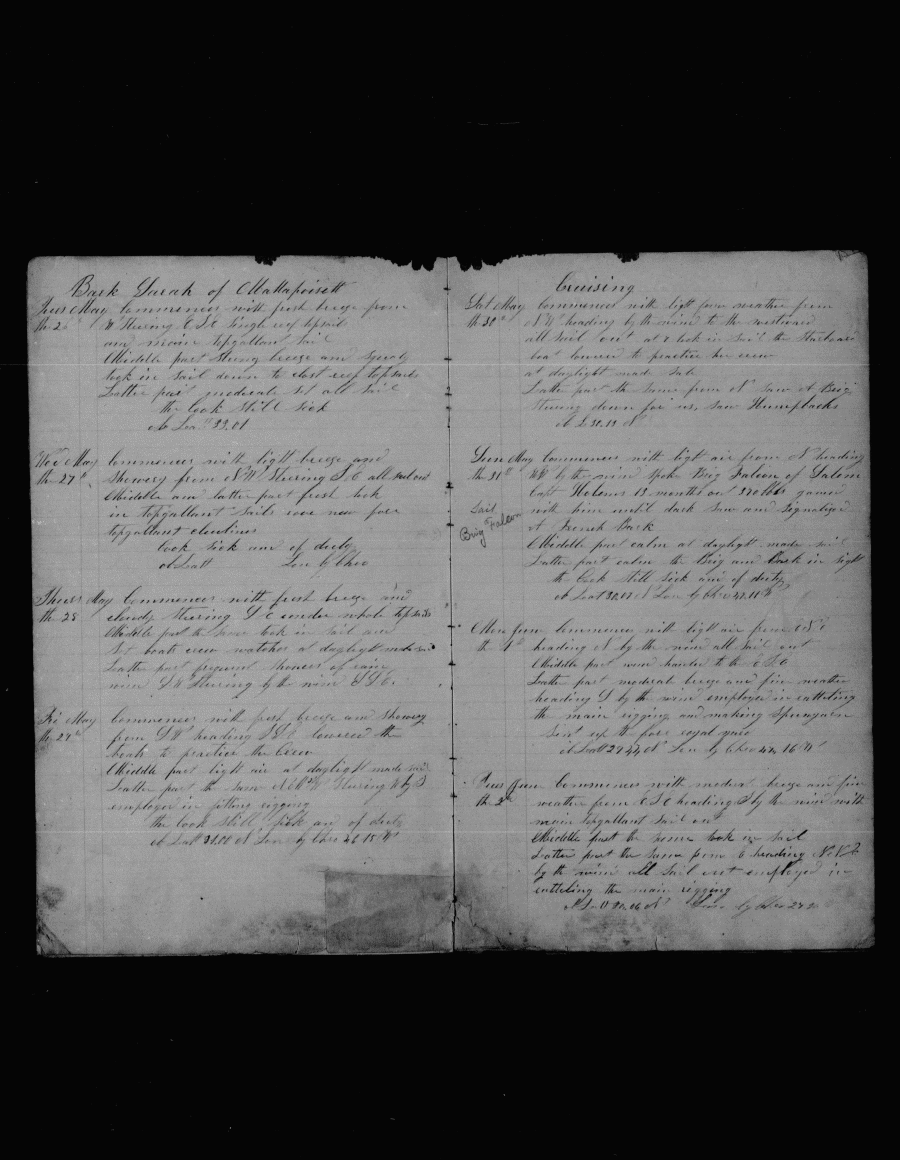 Bark Sarah of Mattapoisett
Tues May Commences with fresh breeze from
the 26 W Steering E S E Single reef topsails
and main topgallant Sail
Middle part Strong breeze and Squaly
took in Sail down to close reef topsails
Latter part moderate set all Sail
the Cook Still Sick
Lat 33.01
Wed May Commences with light breeze and
the 27th Showery from N W Steering S E all Sail out
Middle and latter part fresh took
in topgallant Sails rove new fore
topgallant clewlines
Cook Sick and of duty
Latt Lon by Chro
Thurs May Commences with fresh breeze and
the 28 cloudy Steering S E under whole topsails
Middle part the Same took in Sail and
Set boats crew watches at daylight made sail
Latter part frequent Showers of rain
wind S W Steering by the wind S S E
Fri May Commences with fresh breeze and Showery
the 29th from S W heading S S E lowered the
boats to practice the Crew
Middle part light air at daylight made sail
Leatter part the Same Steering W by S
employed in fitting rigging
the Cook Still Sick and of duty
Latt 31.00 Lon by Chro 46 15 W
Cruising
Sat May Commences with light fine weather from
the 30th N W heading by the wind to the westward
all Sail out at took in Sail the Starboard
boat lowered to practice her crew
at daylight made Sale
Latter part the Same from N Saw A Brig
Steering down for us, Saw Humpbacks
Sun May Commences with light air from N heading
the 31th by the wind Spoke Brig Falcon of Salem
Capt Holmes 13 months out 270 bbls gamed
Sail with him until dark Saw and Signalized
Brig Falcon A French Bark
Middle part calm at daylight made sail
Latter part calm the Brig and Bark in Sight
the Cook Still Sick and of duty
Lon by Chro
Mon June Commences with light air from
the 1st heading N by the wind all Sail out
Middle part wind hauled to the E S E
Latter part moderate breeze and fine weather
heading S by the wind employed in rattling
the main rigging and making Spunyarn
Sent up the fore royal yard
Latt 29.44 N Lon by Chro 47.16 W
Tues June Commences with moderat breeze and fine
the 2nd weather from E S E heading by the wind with
main topgallant Sail out
Middle part the Same took in Sail
Latter part the Same from E heading
by the wind all Sail out employed in
rattling the main rigging
Latt 30.06 N Lon by Chro